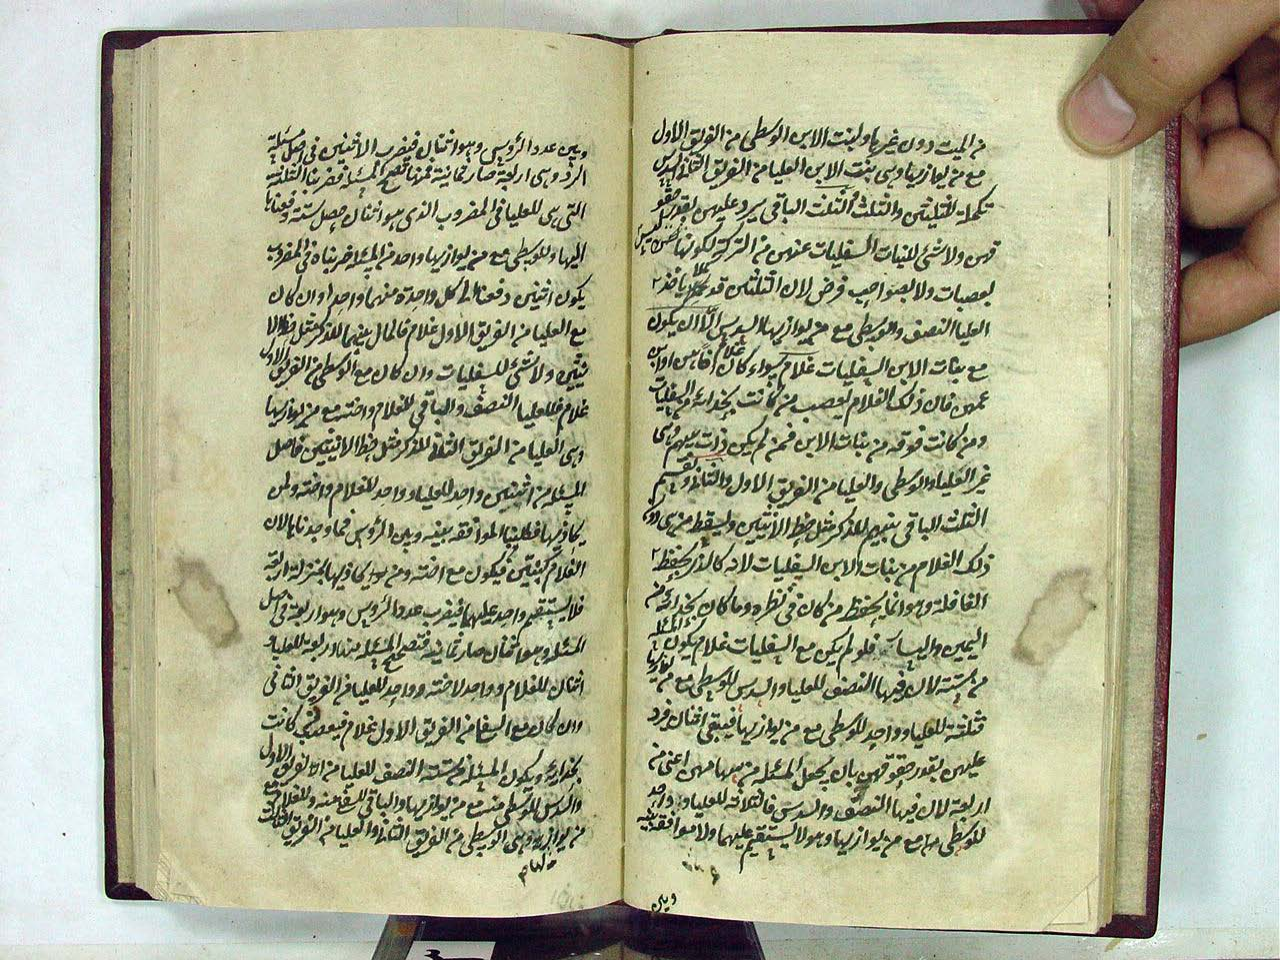 من الميت دون غيرها ولبنت الابن الوسطى من الفريق الاول
مع من يوازيها وهى بنت الابن العليا من الفريق الثانى السدس
تكملة للثلثين والثلث الباقى يرد عليهن بقدر حقو
قهن ولا شئ للبنات السفليات عنهن من التركة لكونها ليس
بعصبات ولا بصواحب فرض لان الثلثين قد ياخذ
العليا النصف والوسطى مع من يوازيها السدس الا ان يكون
مع بنات الابن السفليات غلام سواء كان غلام
عمهن فان ذلك الغلام يعصب من كانت بحذائه من السفليات
ومن كانت فوقه من بنات الابن فمن لم يكن ذات سهم وهى
غير العليا والوسطى والعليا من الفريق الاول والثانى ويقسم
الثلث الباقى بينهم للذكر مثل حظ الانثيين ويسقط من هى دون
ذلك الغلام من بنات الابن السفليات لانه كالذكر يحفظ
القافلة وهو انما يحفظ من كان فى نظره وما كان بحذائه من
اليمين واليسار فلو لم يكن مع السفليات غلام يكون المسئلة
من ستة لان فيها النصف للعليا والسدس للوسطى مع من يوازيها
فثلثة للعليا وواحد للوسطى مع من يوازيها فيبقى اثنان فرد
عليهن بقدر حقوقهن بان يجعل المسئلة من سهامهن اعنى من
اربعة لان فيها النصف والسدس فالثلاثة للعليا وواحد
للوسطى مع من يوازيها وهو لا يستقيم عليهما ولا موافقة بينه
وبين
وبين عدد الرؤس وهو اثنان فيضرب الاثنين فى اصل مسئلة
الرد وهى اربعة صار ثمانية فمنها تصح المسئلة فضربنا الثلثة
التى هى للعليا فى المضروب الذى هو اثنان حصل ستة دفعناها
اليها وللوسطى مع من يوازيها واحد من المسئلة ضربناه فى المضروب
يكون اثنين دفعنا الى كل واحدة منهما واحدا وان كان
مع العليا من الفريق الاول غلام فالمال بينهما للذكر مثل حظ الا
نثيين ولا شئ للسفليات وان كان مع الوسطى من الفريق الاول
غلام فللعليا النصف والباقى للغلام واخته مع من يوازيها
وهى العليا من الفريق الثانى للذكر مثل حظ الانثيين فاصل
المسئلة من اثنين واحد للعليا وواحد للغلام واخته ولمن
يحاذيها فطلبنا الموافقة بينه وبين الرؤس فما وجدناها لان
الغلام كبنتين فيكون مع اخته ومن يحاذيها بمنزلة اربعة
فلا يستقيم واحد عليها فيضرب عدد الرؤس وهو اربعة فى اصل
المسئلة وهو اثنان صار ثمانية فتصح المسئلة منها اربعة للعليا و
اثنان للغلام وواحد لاخته وواحد للعليا من الفريق الثانى
وان كان مع السفلى من الفريق الاول غلام فيعصب كانت
بحذائه ويكون المسئلة من ستة النصف للعليا من الفريق الاول
والسدس للوسطى منه مع من يوازيها والباقى للسفلى منه وللغلام مع
من يوازيه وهى الوسطى من الفريق الثانى والعليا من الفريق الثالث